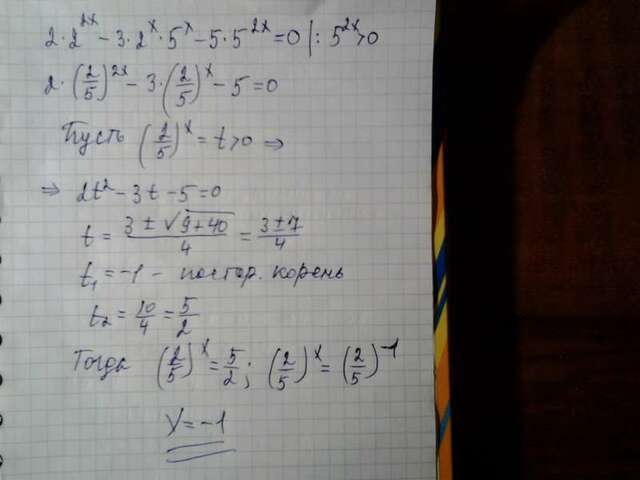 2·2^{2x} – 3·2^x·5^x – 5·5^{2x} = 0 |: 5^{2x} > 0
2·(2/5)^{2x} – 3·(2/5)^x – 5 = 0
Пусть (2/5)^x = t > 0 ⇒
⇒ 2t² – 3t – 5 = 0
t = (3 ± √(9+40))/4 = (3±7)/4
t₁ = –1 – постор. корень
t₂ = 10/4 = 5/2
Тогда (2/5)^x = 5/2; (2/5)^x = (2/5)^{-1}
x = –1